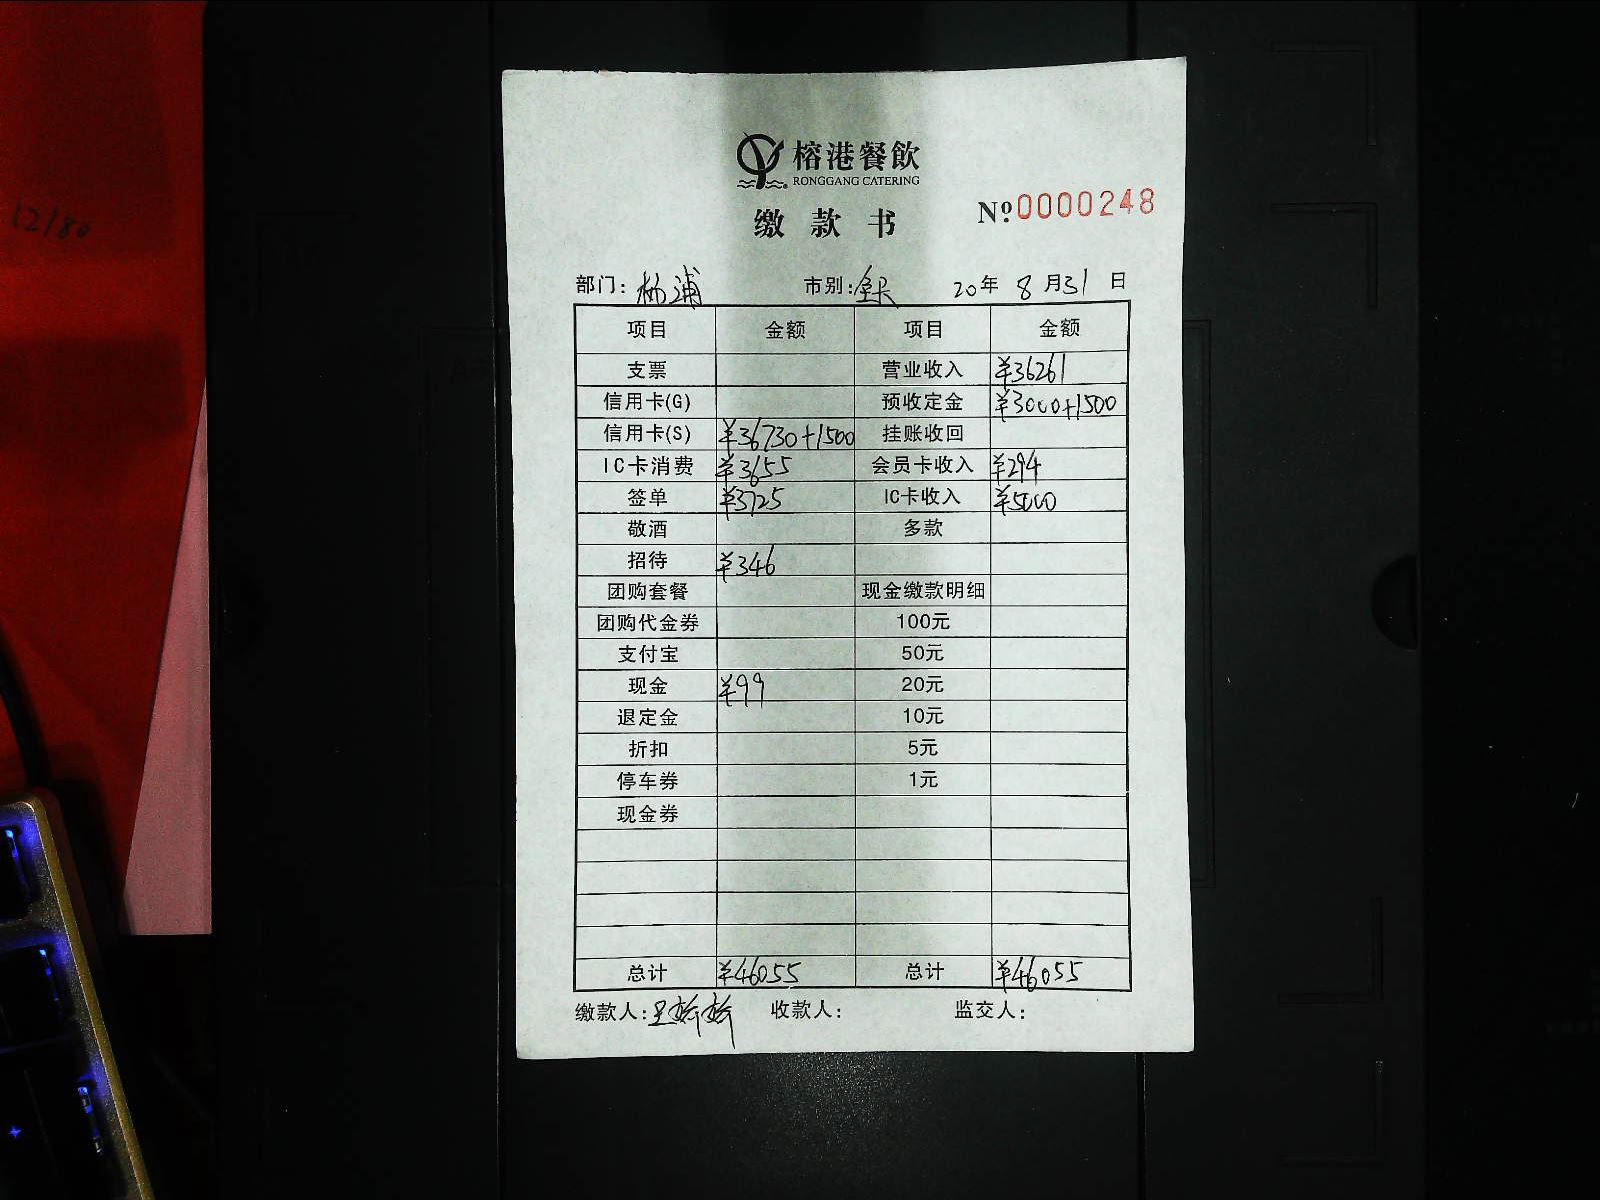 榕港餐飲
RONGGANG CATERING
缴款书 Nº0000248
部门: 杨浦 市别: 全天 20年 8月31日
项目 金额 项目 金额
支票 营业收入 ¥36261
信用卡(G) 预收定金 ¥3000+1500
信用卡(S) ¥36730+1500 挂账收回
IC卡消费 ¥3655 会员卡收入 ¥294
签单 ¥3725 IC卡收入 ¥5000
敬酒 多款
招待 ¥346
团购套餐 现金缴款明细
团购代金券 100元
支付宝 50元
现金 ¥99 20元
退定金 10元
折扣 5元
停车券 1元
现金券
总计 ¥46055 总计 ¥46055
缴款人: 收款人: 监交人: